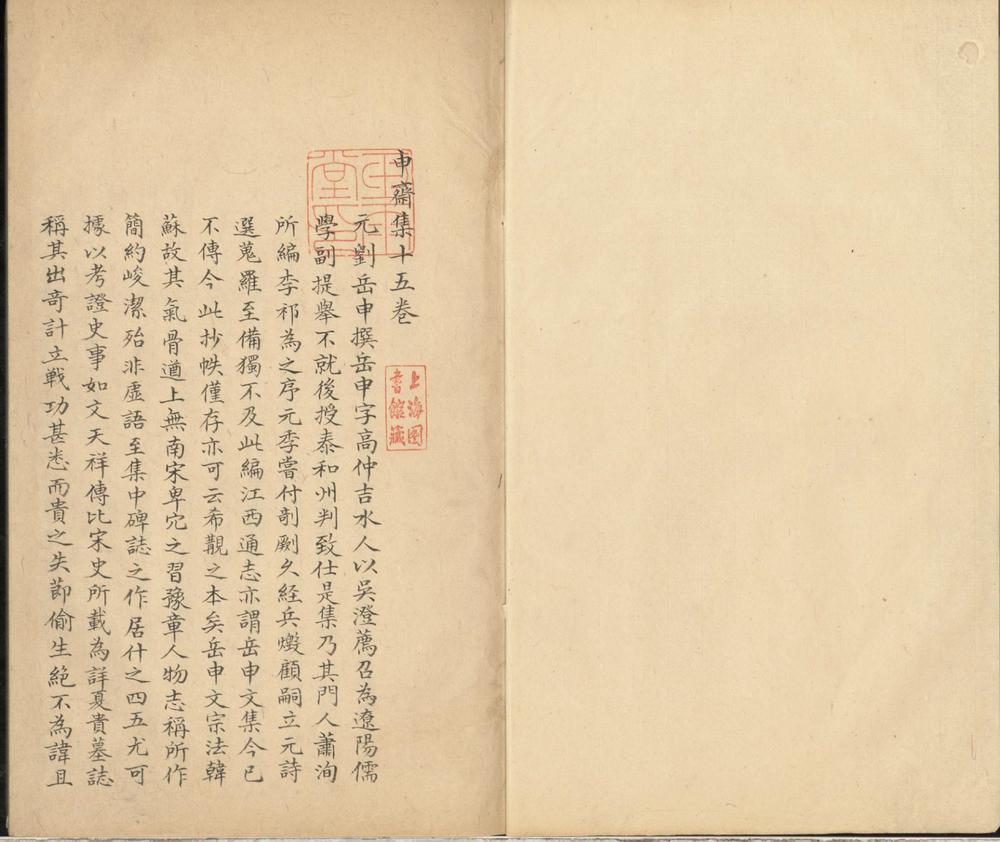 申齋集十五卷
元劉岳申撰岳申字高仲吉水人以吳澄薦召為遼陽儒
學副提舉不就後授泰和州判致仕是集乃其門人蕭洵
所編李祁為之序元季嘗付剞劂久経兵燬顧嗣立元詩
選蒐羅至備獨不及此編江西通志亦謂岳申文集今已
不傳今此抄帙僅存亦可云希覯之本矣岳申文宗法韓
蘇故其氣骨遒上無南宋卑宂之習豫章人物志稱所作
簡約峻潔殆非虛語至集中碑誌之作居什之四五尤可
據以考證史事如文天祥傳比宋史所載為詳夏貴墓誌
稱其出奇計立戰功甚悉而貴之失節偷生絕不為諱且
上海圖
書館藏